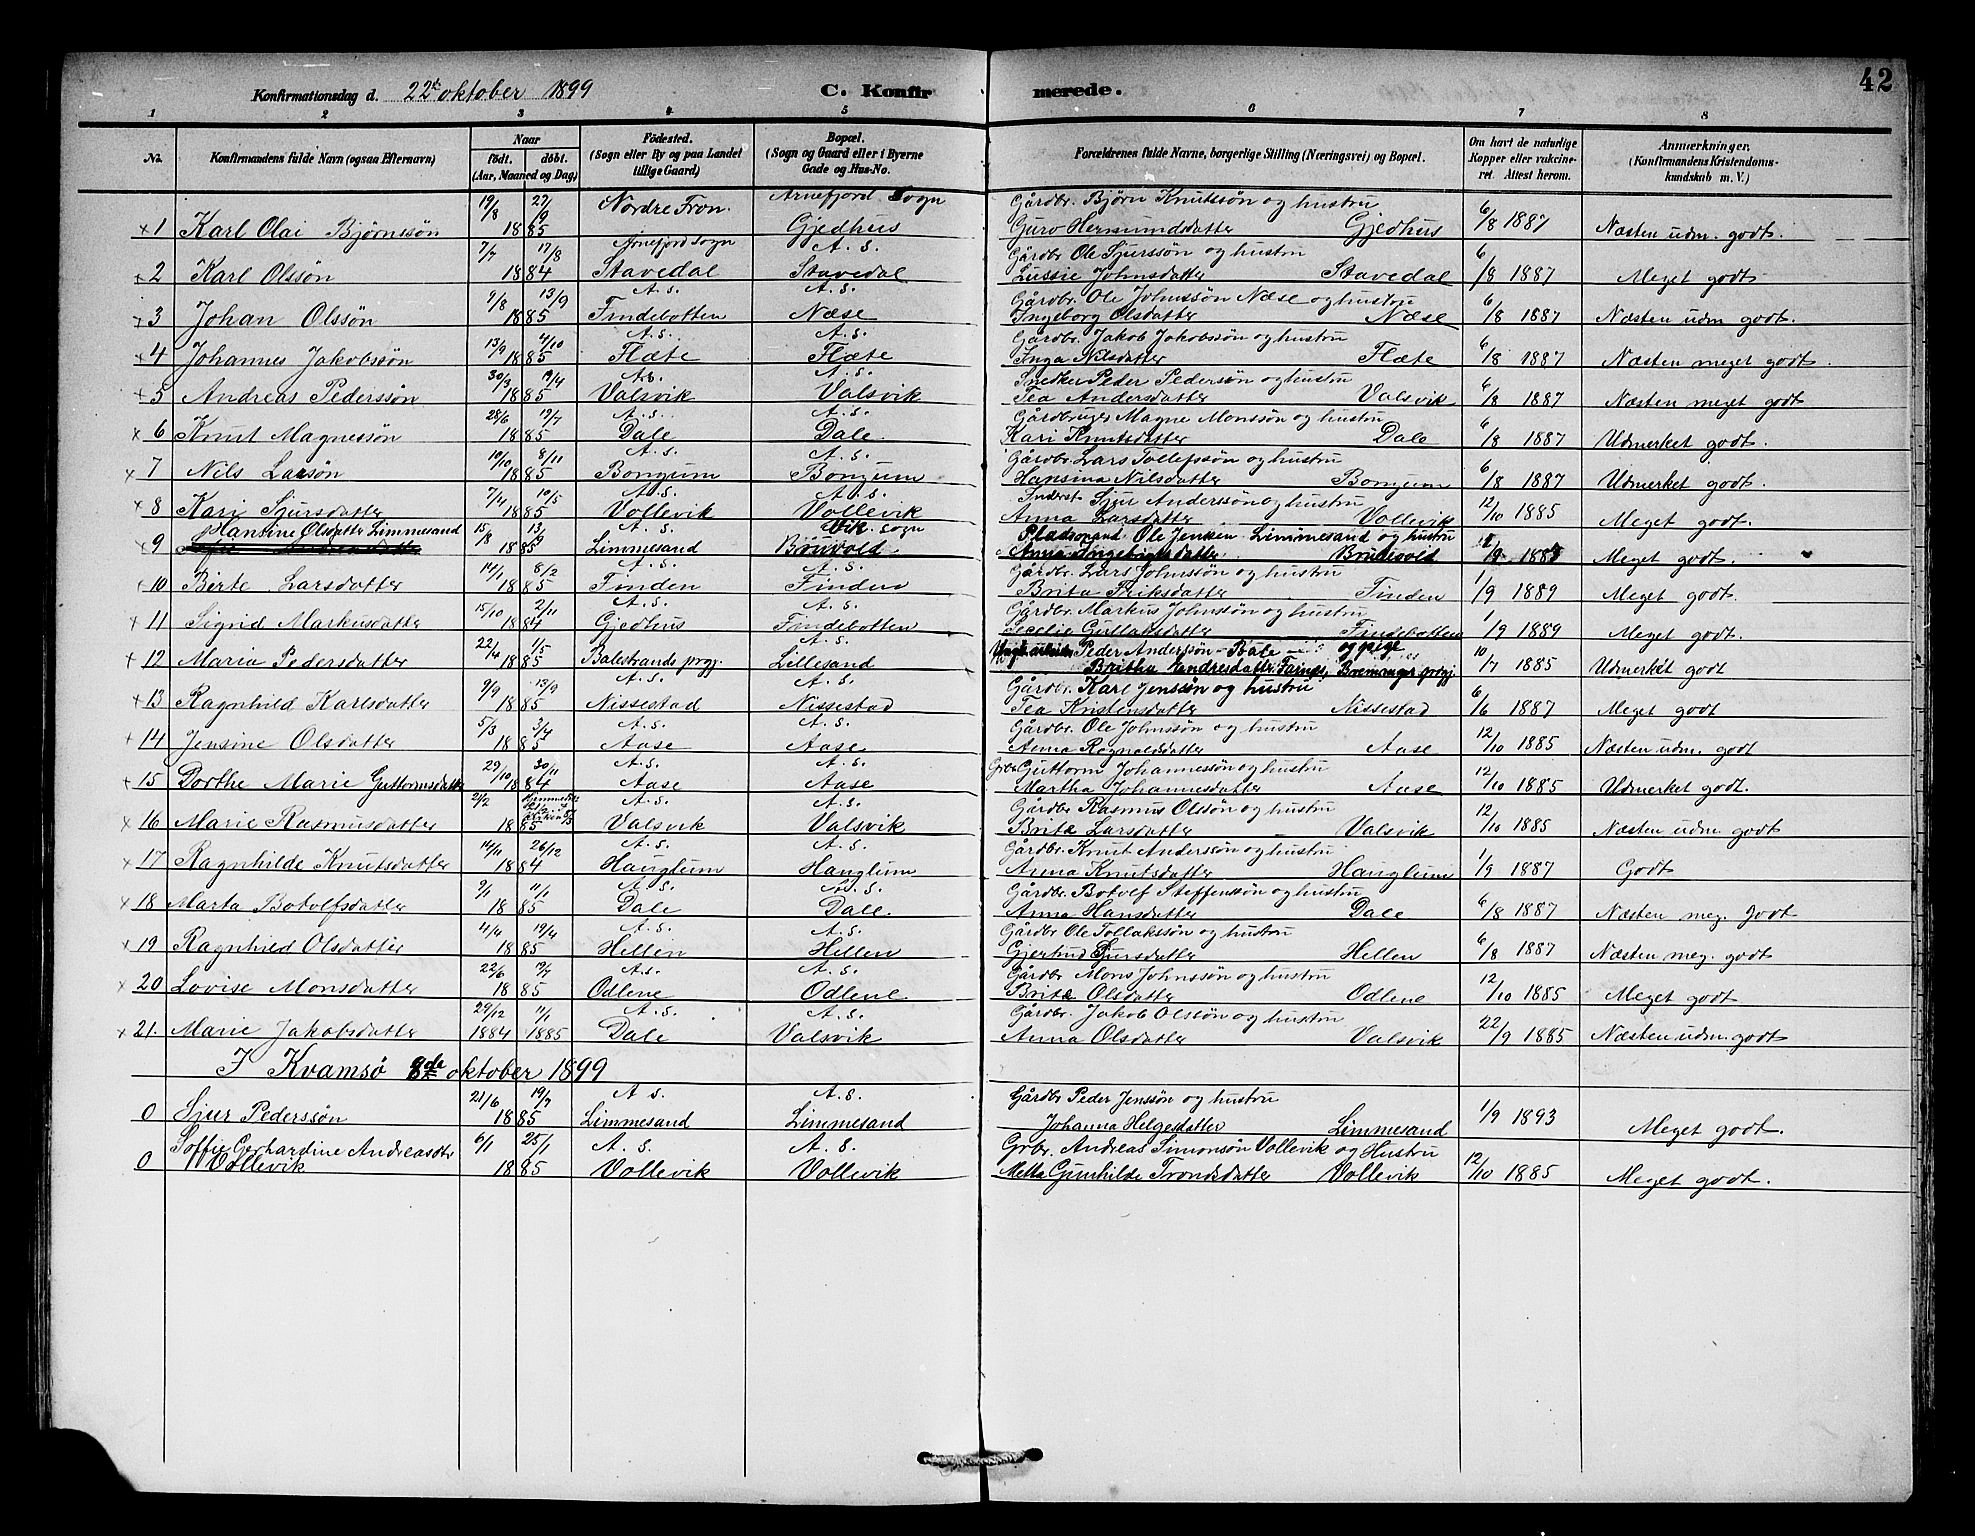 42
Konfirmationsdag d. 22de oktober 1899 C. Konfirmerede.
1 2 3 4 5 6 7 8
No. Konfirmandens fulde Navn (ogsaa Efternavn) Naar født. døbt. (Aar, Maaned og Dag) Fødested. (Sogn eller By og paa Landet tillige Gaard) Bopæl. (Sogn og Gaard eller i Byerne Gade og Hus-No. Forældrenes fulde Navne, borgerlige Stilling (Næringsvei) og Bopæl. Om havt de naturlige Kopper eller vakcineret. Attest herom. Anmærkninger. (Konfirmandens Kristendomskundskab m. V.)
19/8 27/9 Nordre Fron. Arnefjord Sogn Gårdbr. Bjørn Knutssøn og hustru
x 1 Karl Olai Bjørnssøn 1885 Gjedhus Guro Hermundsdatter Gjedhus 6/8 1887 Næsten udm. godt.
7/7 17/8 Arnefjord sogn A. S. Gårdbr. Ole Sjurssøn og hustru
x 2 Karl Olssøn 1884 Stavedal Stavedal Lussie Johnsdatter Stavedal 6/8 1887 Meget godt
9/8 13/9 A. S. A. S. Gårdbr. Ole Johnssøn Næse og hustru
3 Johan Olssøn 1885 Findebotten Næse Ingeborg Olsdatter Næse 6/8 1887 Næsten udm godt.
13/9 4/10 A. S. A. S. Gårdbr. Jakob Jakobssøn og hustru
x 4 Johannes Jakobssøn 1885 Flæte Flæte Inga Nilsdatter Flæte 6/8 1887 Næsten meget godt
30/3 19/4 A. S. A. S. Snedker Peder Pederssøn og hustru
x 5 Andreas Pederssøn 1885 Valsvik Valsvik Tea Andersdatter Valsvik 6/8 1887 Næsten meget godt
28/6 19/7 A. S. A. S. Gårdbruger Magne Monssøn og hustru
x 6 Knut Magnessøn 1885 Dale Dale. Kari Knutsdatter Dale 6/8 1887 Udmerket godt.
10/10 8/11 A. S. A. S. Gårdbr. Lars Tollefssøn og hustru
x 7 Nils Larsøn 1885 Bongum Bongum Hansina Nilsdatter Bongum 6/8 1887 Udmerket godt.
7/4 10/5 A. S. A. S. Inderst Sjur Anderssøn og hustru
x 8 Kari Sjursdatter 1885 Vollevik Vollevik Anna Larsdatter Vollevik 12/10 1885 Meget godt.
Hansine Olsdatter Limmesand 15/8 13/9 A. S. Vik sogn Pladsmand Ole Jensen Limmesand og hustru
x 9 1885 Limmesand Anna Ingebrigtsdatter Meget godt.
14/1 8/2 A. S. A. S. Gårdbr. Lars Johnssøn og hustru
x 10 Birte Larsdatter 1885 Finden Finden Brita Eriksdatter Finden 1/9 1889 Meget godt.
15/10 2/11 A. S. A. S. Gårdbr. Markus Johnssøn og hustru
x 11 Sigrid Markusdatter 1884 Gjedhus Findebotten Secelie Gullaksdatter Findebotten 1/9 1889 Meget godt.
22/4 1/5 A. S. Ungk. Peder Anderssøn Bale og pige
x 12 Maria Pedersdatter 1885 Balestrands prgj. Lillesand Britha Endresdatter Bremanger prgj. 10/7 1885 Udmerket godt
9/9 13/9 A. S. A. S. Gårdbr. Karl Jenssøn og hustru
x 13 Ragnhild Karlsdatter 1885 Nissestad Nissestad Tea Kristensdatter Nissestad 6/6 1887 Meget godt
5/3 3/4 A. S. A. S. Gårdbr. Ole Johnssøn og hustru
x 14 Jensine Olsdatter 1885 Aase Aase Anna Ragnaldsdatter Aase 12/10 1885 Næsten udm. godt
29/10 30/11 A. S. A. S. Grbr. Guttorm Johannessøn og hustru
x 15 Dorthe Marie Guttormsdatter 1884 Aase Aase Martha Johannesdatter Aase 12/10 1885 Udmerket godt.
21/2 Hjemmedøbt A. S. A. S. Gårdbr. Rasmus Olssøn og hustru
x 16 Marie Rasmusdatter 1885 Valsvik Valsvik Brita Larsdatter Valsvik 12/10 1885 Næsten udm godt
14/11 26/12 A. S. A. S. Gårdbr. Knut Anderssøn og hustru
x 17 Ragnhilde Knutsdatter 1884 Hauglum Hauglum Anna Knutsdatter Hauglum 1/9 1887 Godt
9/1 11/1 A. S. A. S. Gårdbr. Botolf Steffenssøn og hustru
x 18 Marta Botolfsdatter 1885 Dale Dale. Anna Hansdatter Dale 6/8 1887 Næsten meg. godt
4/4 19/4 A. S. A. S. Gårdbr. Ole Tollakssøn og hustru
x 19 Ragnhild Olsdatter 1885 Hellen Hellen Gjertrud Sjursdatter Hellen 6/8 1887 Næsten meg. godt
22/6 19/7 A. S. A. S. Gårdbr Mons Johnssøn og hustru
x 20 Lovise Monsdatter 1885 Odlene Odlene Brita Olsdatter Odlene 12/10 1885 Meget godt
29/12 11/1 A. S. A. S. Gårdbr. Jakob Olssøn og hustru
x 21. Marie Jakobsdatter 1884 1885 Dale Valsvik Anna Olsdatter Valsvik 22/9 1885 Næsten udm. godt
I Kvamsø 8de oktober 1899
21/6 19/7 A S. A. S. Gårdbr Peder Jenssøn og hustru
0 Sjur Pederssøn 1885 Limmesand Limmesand Johanna Helgesdatter Limmesand 1/9 1893 Meget godt.
Soffie Gerhardine Andreasdtr 6/1 25/1 A. S. A. S. Grbr. Andreas Simonsøn Vollevik og Hustru
0 Vollevik 1885 Vollevik Vollevik Metta Gunhilde Trondsdatter Vollevik 12/10 1885 Meget godt.